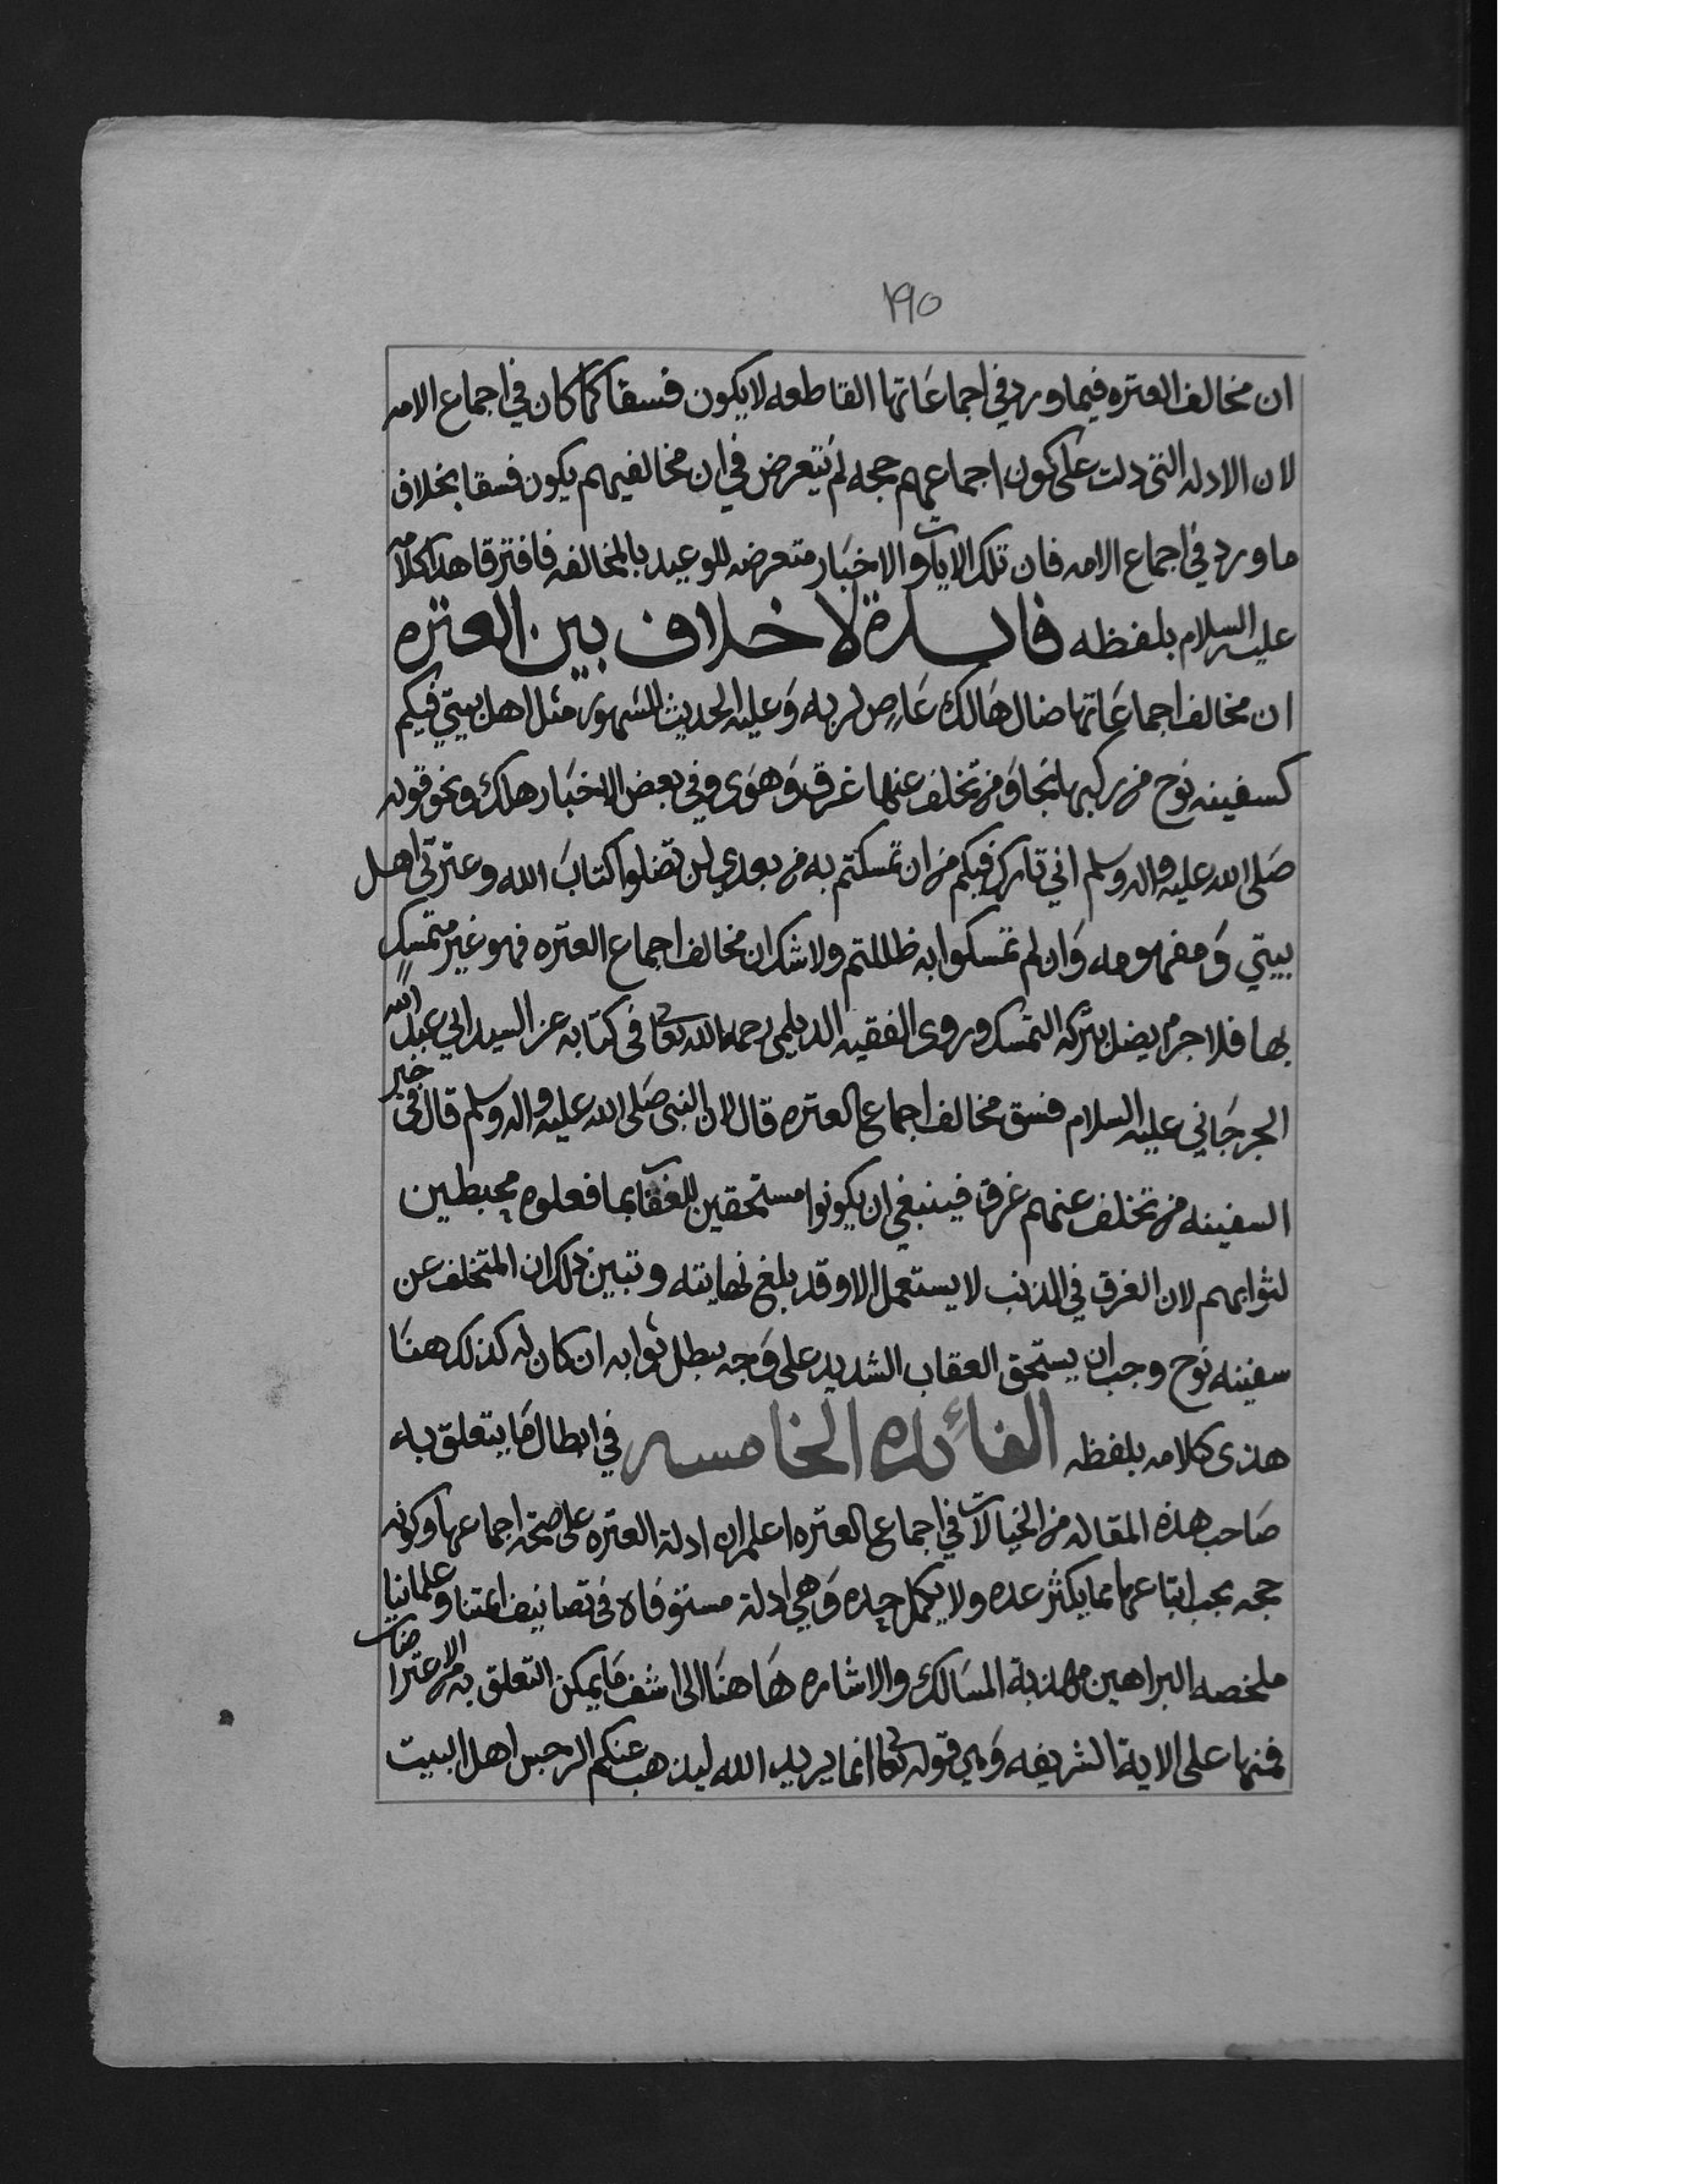 ١٩٥
ان مخالف العتره فيما ورد في اجماعاتها القاطعه لا يكون فسقا كما كان في اجماع الامه
لان الادله التي دلت على كون اجماعهم حجه لم تتعرض في ان مخالفيهم يكون فسقا بخلاف
ما ورد في اجماع الامه فان تلك الايات والاخبار متعرضه للوعيد بالمخالفه فافترقا هذا كلامه
عليه السلام بلفظه فايدة لا خلاف بين العتره
ان مخالف اجماعاتها ضال هَالك عَاصٍ لربه وَعليه الحديث المشهور مثل اهل بيتي فيكم
كسفينه نوح من ركبها نجا وَمن تخلف عنها غرق وَهوَى وفي بعض الاخبَار هلك ونحو قوله
صَلى الله عليه واله وسلم اني تارك فيكم من ان تمسكتم به من بعدي لن تضلوا كتابَ الله وعترتي اهل
بيتي وَمفهومه وَان لم تمسكوا به ظللتم ولا شك ان مخالف اجماع العتره فهو غير متمسكٍ
بها فلا جرم ايضل بتركه التمسك وروى الفقيه الديلمي رحمه الله تعالى في كتابه عن السيد ابي عبد الله
الجرجَاني عليه السلام فسق مخالف اجماع العتره قال لان النبي صَلى الله عليه واله وسلم قال في خبر
السفينه من تخلف عنهم غرق فينبغي ان يكونوا مستحقين للعقاب بما فعلوه محبطين
لثوابهم لان الغرق في الذنب لا يستعمل الا وقد بلغ نهايته وتبين ذلك ان المتخلف عن
سفينه نوح وجب ان يستحق العقاب الشديد على وَجه يبطل ثوابه ان كان له كذلك هنَا
هذى كلامه بلفظه الفائده الخامسه في ابطال مَا يتعلق به
صَاحب هذه المقاله من الخيالات في اجماع العتره اعلم ان ادلة العتره على صحة اجماعها وكونه
حجه يجب اتباعها مما يكثر عده ولا يكمل حده وَهي ادلة مستوفاه في تصانيف ائمتنا وعلمائنا
ملخصه البراهين مهذبة المسَالك والاشاره هَاهنَا الى اشف مَا يمكن التعلق به من الاعتراضات
فمنها على الاية الشريفه وَهي قوله تعالى انما يريد الله ليذهب عنكم الرجس اهل البيت